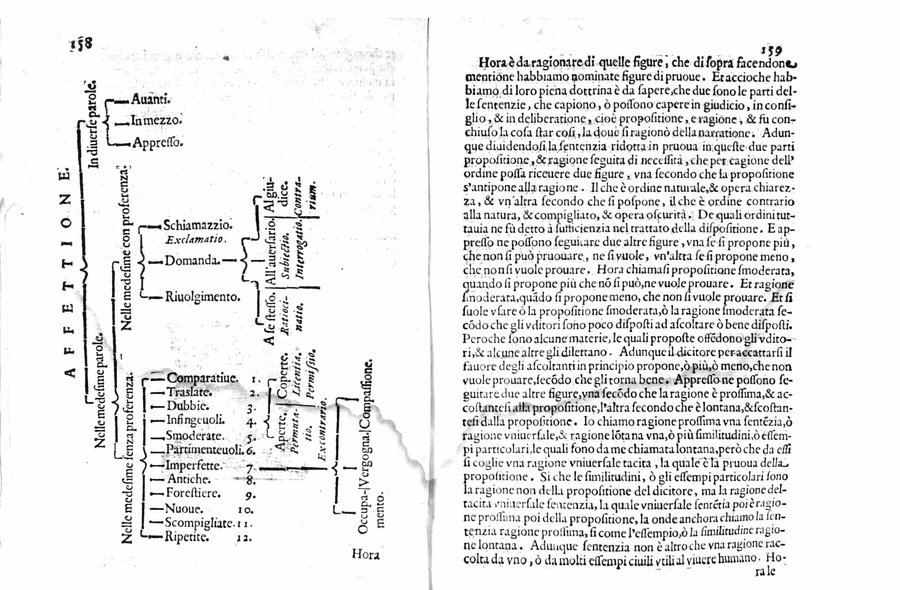 158
AFFETTIONE.
In diuerse parole.
Auanti.
In mezzo.
Appresso.
Nelle medesime parole.
Nelle medesime con proferenza.
Schiamazzio.
Exclamatio.
Domanda.
Riuolgimento.
Al giu-
dice.
Contra-
rium.
All'auersario.
Subiectio.
Interrogatio.
A se stesso.
Ratioci-
natio.
Nelle medesime senza proferenza.
Comparatiue. 1.
Traslate. 2.
Dubbie. 3.
Infingeuoli. 4.
Smoderate. 5.
Partimenteuoli. 6.
Imperfette. 7.
Antiche. 8.
Forestiere. 9.
Nuoue. 10.
Scompigliate. 11.
Ripetite. 12.
Coperte.
Licentia,
Permissio.
Aperte.
Permuta-
tio.
Ex contrario.
Compassione.
Vergogna.
Occupa-
mento.
Hora
159
Hora è da ragionare di quelle figure, che di sopra facendone
mentione habbiamo nominate figure di pruoue. Et accioche hab-
biamo di loro piena dottrina è da sapere, che due sono le parti del-
le sentenzie, che capiono, ò possono capere in giudicio, in consi-
glio, & in deliberatione, cioè propositione, e ragione, & fu con-
chiuso la cosa star cosi, la doue si ragionò della narratione. Adun-
que diuidendosi la sentenzia ridotta in pruoua in queste due parti
propositione, & ragione seguita di necessità, che per cagione dell'
ordine possa riceuere due figure, vna secondo che la propositione
s'antipone alla ragione. Il che è ordine naturale, & opera chiarez-
za, & vn'altra secondo che si pospone, il che è ordine contrario
alla natura, & compigliato, & opera oscurità. De quali ordini tut-
tauia ne fù detto à sufficienzia nel trattato della dispositione. E ap-
presso ne possono seguitare due altre figure, vna se si propone più,
che non si può pruouare, ne si vuole, vn'altra se si propone meno,
che non si vuole prouare. Hora chiamasi propositione smoderata,
quando si propone più che nō si può, ne vuole prouare. Et ragione
smoderata, quādo si propone meno, che non si vuole prouare. Et si
suole vsare ò la propositione smoderata, ò la ragione smoderata se-
cōdo che gli vditori sono poco disposti ad ascoltare ò bene disposti.
Perche sono alcune materie, le quali proposte offēdono gli vdito-
ri, & alcune altre gli dilettano. Adunque il dicitore per accattarsi il
fauore degli ascoltanti in principio propone, ò più, ò meno, che non
vuole prouare, secōdo che gli torna bene. Appresso ne possono se-
guitare due altre figure, vna secōdo che la ragione è prossima, & ac-
costantesi alla propositione, l'altra secondo che è lontana, & scostan-
tesi dalla propositione. Io chiamo ragione prossima vna sentēzia, ò
ragione vniuersale, & ragione lōtana vna, ò più similitudini, ò essem-
pi particolari, le quali sono da me chiamata lontana, però che da essi
si coglie vna ragione vniuersale tacita, la quale è la pruoua della
propositione. Si che le similitudini, ò gli essempi particolari sono
la ragione non della propositione del dicitore, ma la ragione del-
tacita vniuersale sentenzia, la quale vniuersale sentētia poi è ragio-
ne prossima poi della propositione, la onde anchora chiamo la sen-
tenzia ragione prossima, si come l'essempio, ò la similitudine ragio-
ne lontana. Adunque sentenzia non è altro che vna ragione rac-
colta da vno, ò da molti essempi ciuili vtili al viuere humano. Ho-
ra le